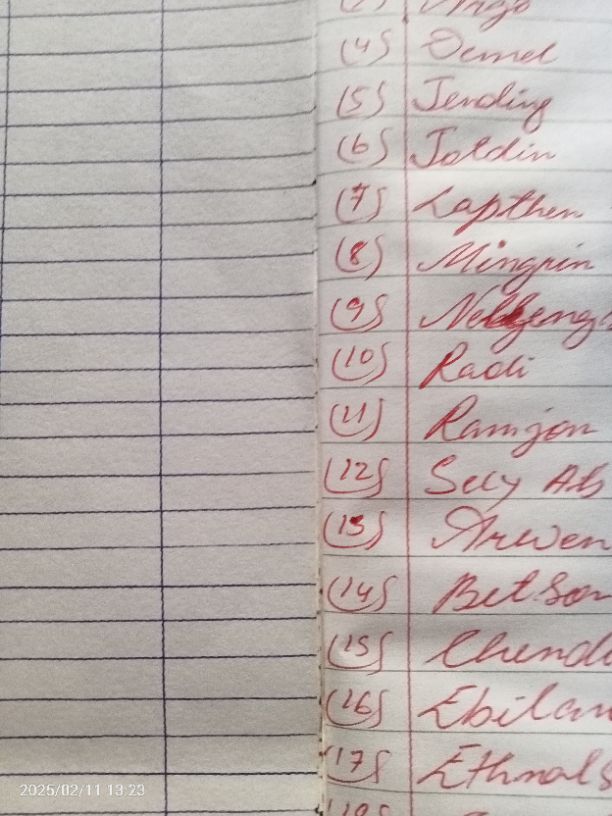 (4) Demel
(5) Jending
(6) Joldin
(7) Lapthen
(8) Mingrin
(9)
(10) Radi
(11) Ramjon
(12) Sucy Ab
(13) Arwen
(14) Betson
(15) Chend
(16) Ebilan
(17) Ethnols
2025/02/11 13:23